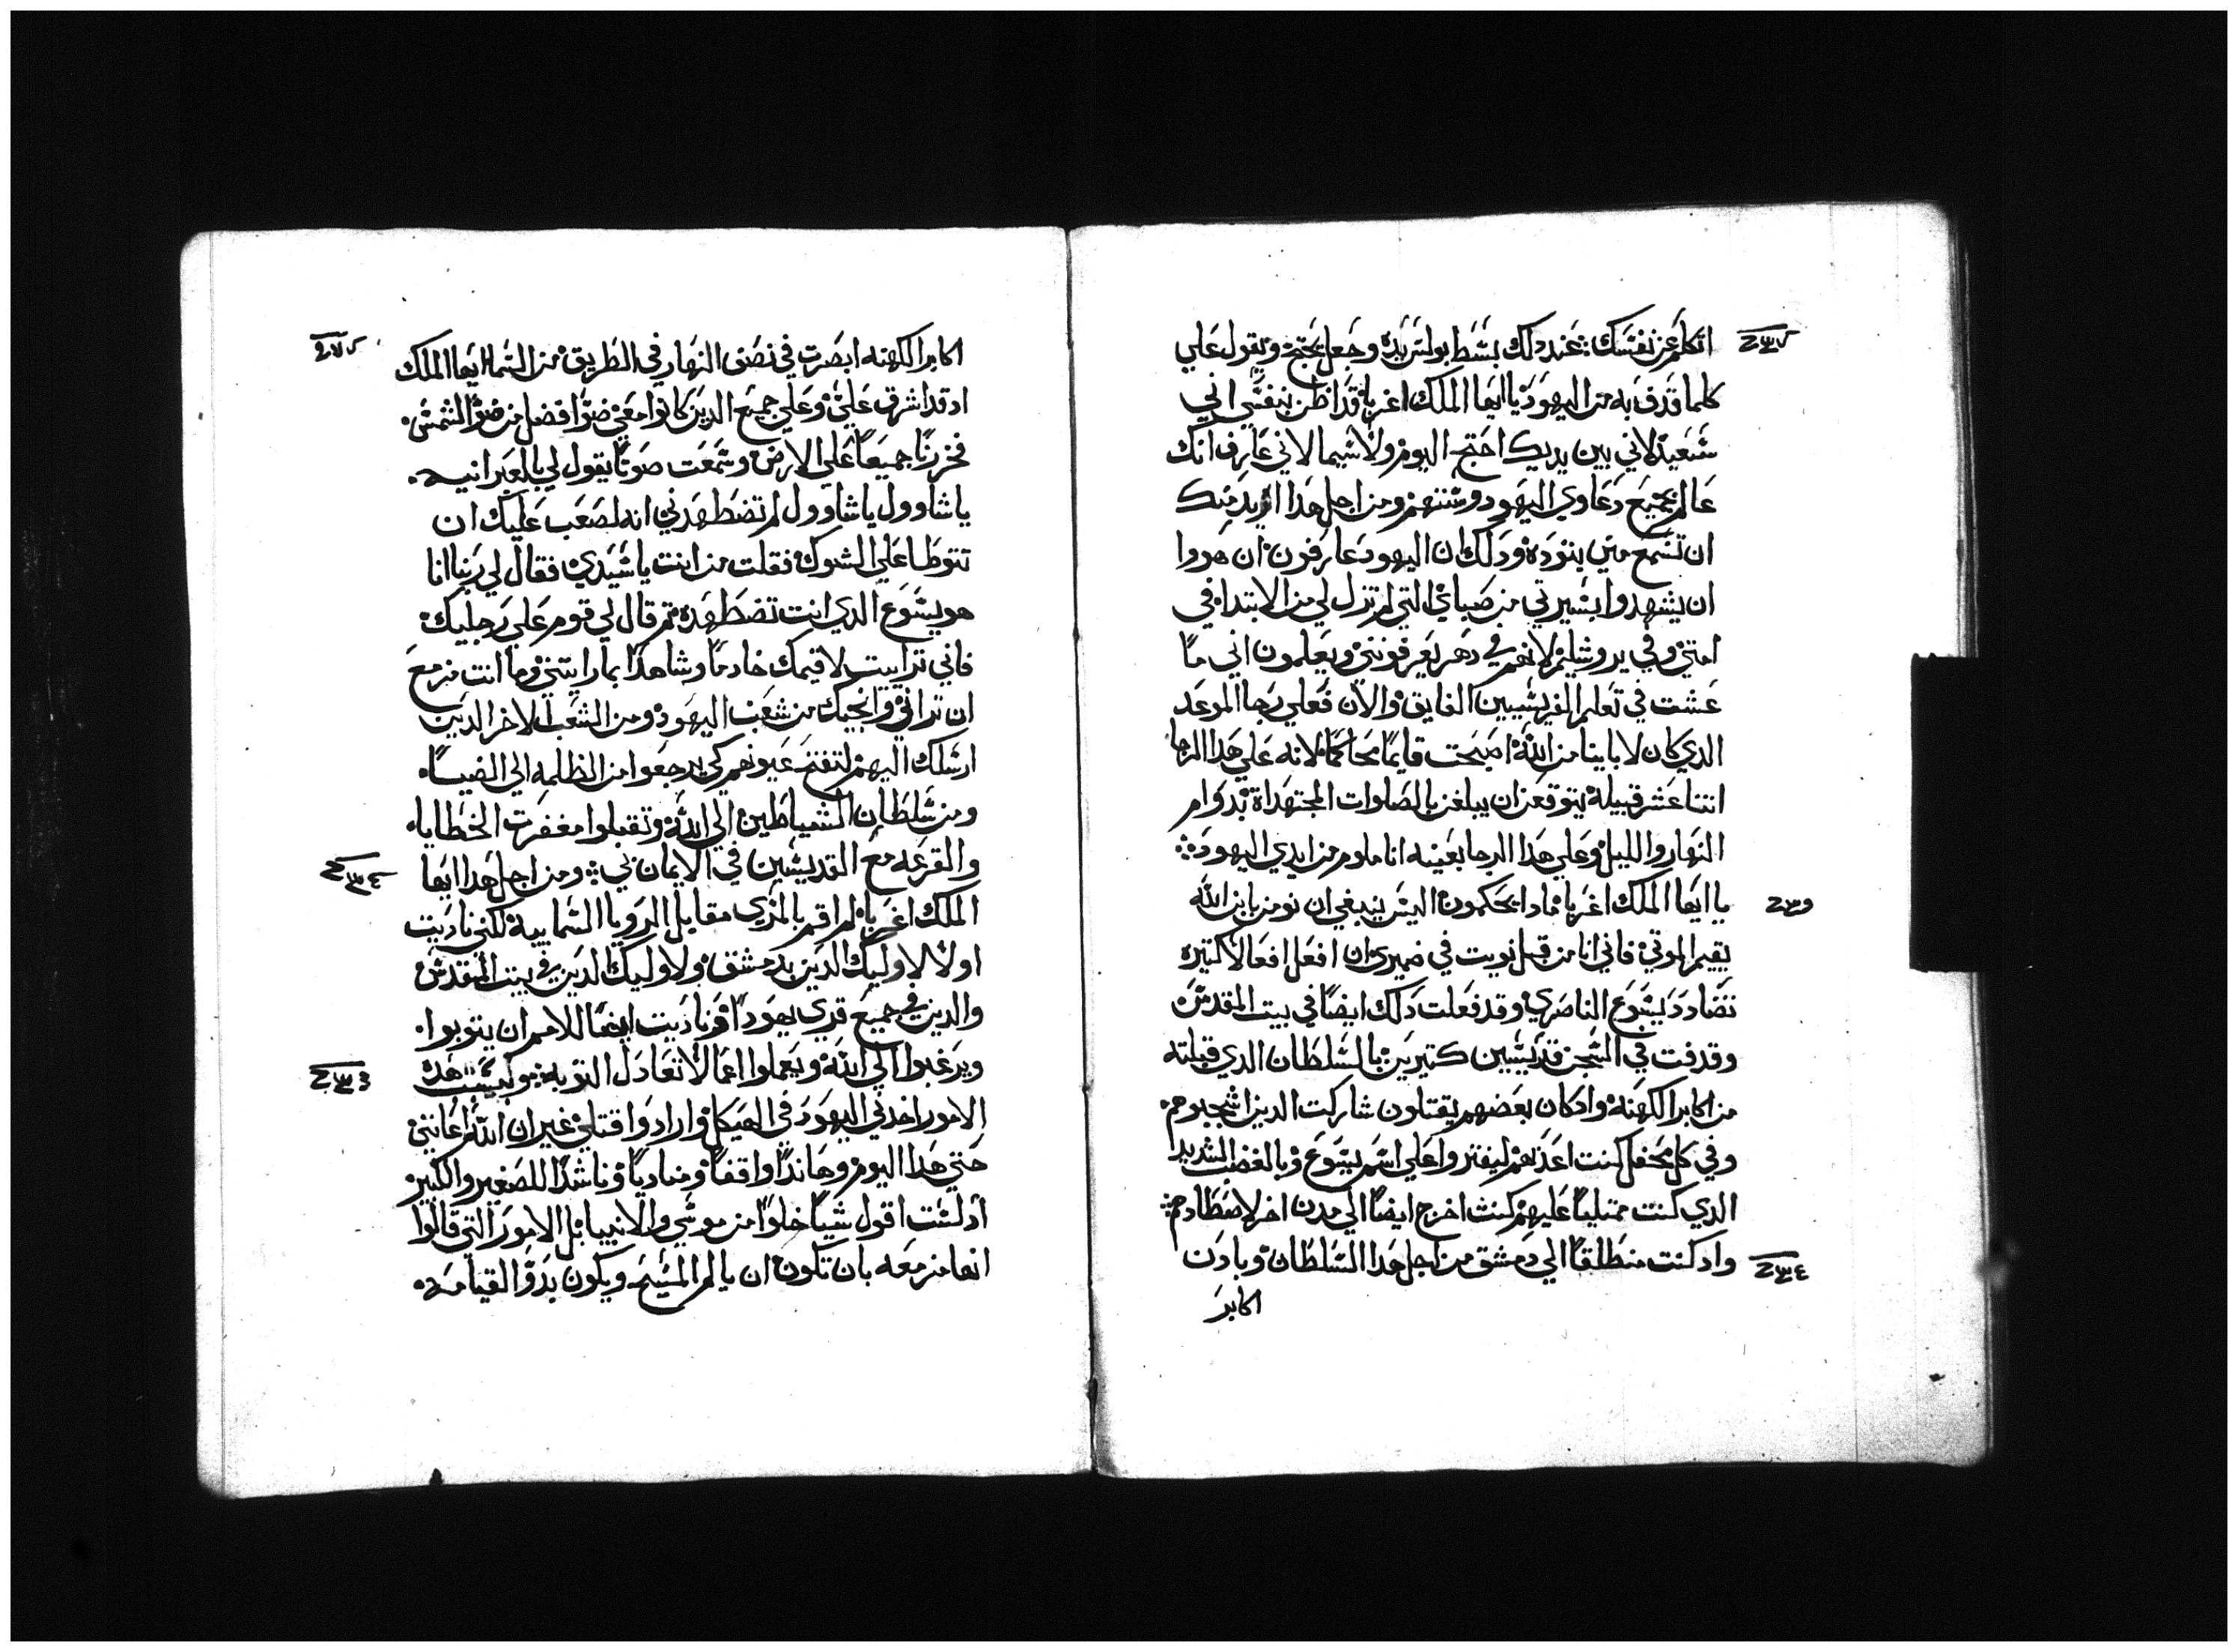 اتكلم عن نفسك؛ عند دلك بسط بولس يده وجعل يحتج ويقول علي
كلما قدف به من اليهود يا ايها الملك اغرباٰ قد اظن بنفسي اني
سعيد لاني بين يديك احتج اليوم ولاسيما لاني عارف انك
عالم بجميع دعاوي اليهود وسننهم ومن اجل هدا اريد منك
ان تسمع مني بتوده ودلك ان اليهود عارفون ان هووا
ان يشهدوا بسيرتي من صباي التي لم تزل لي من الابتدا في
امتي وفي يروشليم لانهم في دهر يعرفونني ويعلمون اني ما
عشت في تعلم الفريسيين الفايق والان فعلي رجا الموعد
الدي كان لابابنا من الله اصبحت قايما محاكما لانه علي هدا الرجا
اتنا عشر قبيله يتوقعن ان يبلغن بالصلوات المجتهداة بدوام
النهار والليل وعلي هدا الرجا بعينه انا ملوم من ايدي اليهود؛
يا ايها الملك اغربا مادا تحكمون اليس ينبغي ان نومن بان الله
يقيم الموتي فاني انا من قبل نويت في ضميري ان افعل افعالا كتيره
تضادد يسوع الناصري وقد فعلت دلك ايضا في بيت المقدس
وقدفت في السجن قديسين كتيرين بالسلطان الدي قبلته
من اكابر الكهنه وادكان بعضهم يقتلون شاركت الدين اشجبوهم
وفي كل محفل كنت اعدبهم ليفتروا علي اسم يسوع وبالغضب الشديد
الدي كنت ممتليا عليهم كنت اخرج ايضا الي مدن اخر لاضطادهم؛
واد كنت منطلقا الي دمشق من اجل هدا السلطان وبادن
اكابر
اكابر الكهنه ابصرت في نصف النهار في الطريق من السما ايها الملك
اد قد اشرق علي وعلي جميع الدين كانوا معي ضوا افضل من ضو الشمس
فخررنا جميعا علي الارض وسمعت صوتا يقول لي بالعبرانيه
يا شاوول يا شاوول لم تضطهدني انه لصعب عليك ان
تتوطا علي الشوك فقلت من انت يا سيدي فقال لي ربنا انا
هو يسوع الدي انت تضطهده تم قال لي قوم علي رجليك
فاني ترايت لاقيمك خادما وشاهدا بما رايتني وما انت مزمع
ان تراني وانجيك من شعب اليهود ومن الشعب الاخر الدين
ارسلك اليهم لتفتح عيونهم كي يرجعوا من الظلمه الي الضيا
ومن سلطان الشياطين الي الله وتقبلوا مغفرت الخطايا
والقرعه مع القديسين في الايمان بي؛ ومن اجل هدا ايها
الملك اغربا لم اقم بالمزي مقابل الرويا السماييه لكني ناديت
اولا لاوليك الدين بدمشق ولاوليك الدين في بيت المقدس
والدين في جميع قري يهودا وناديت ايضا للامم ان يتوبوا
ويرغبوا الي الله ويعملوا اعمالا تعادل التوبه؛ وبسبب هده
الامور اخدني اليهود في الهيكل وارادوا قتلي غير ان الله اعانني
حتي هدا اليوم وهاندا واقفا ومناديا وناشدا للصغير والكبير
اد لست اقول شيا خلوا من موسي والانبيا بل الامور التي قالوا
انها مزمعه بان تكون ان يالم المسيح ويكون بدو القيامه